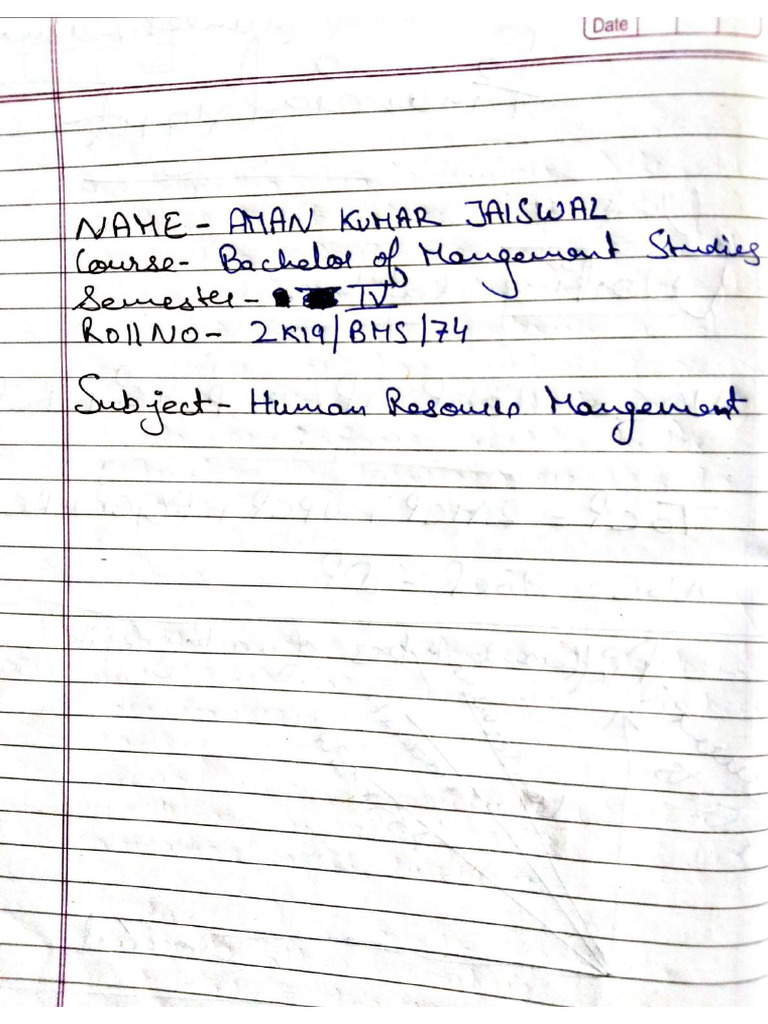 Date
NAME - AMAN KUMAR JAISWAL
Course - Bachelor of Mangement Studies
Semester - IV
Roll NO - 2K19/BMS/74
Subject - Human Resources Mangement